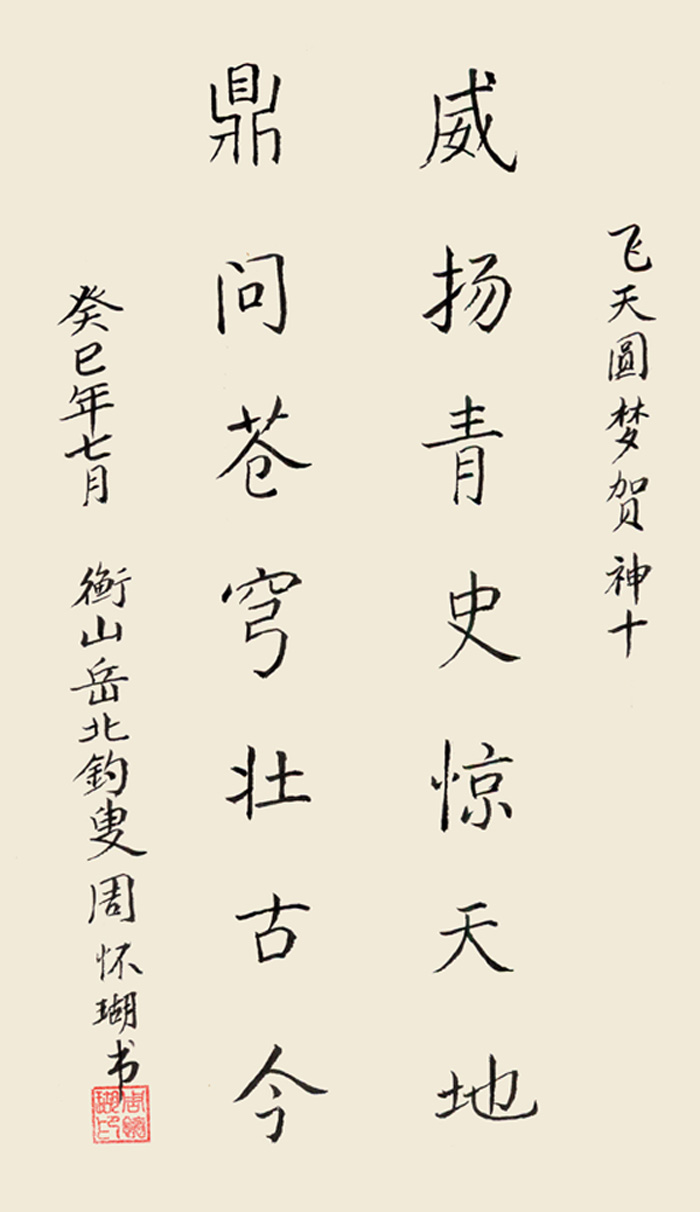 飞天圆梦贺神十
威扬青史惊天地
鼎问苍穹壮古今
癸巳年七月 衡山岳北钓叟周怀瑚书